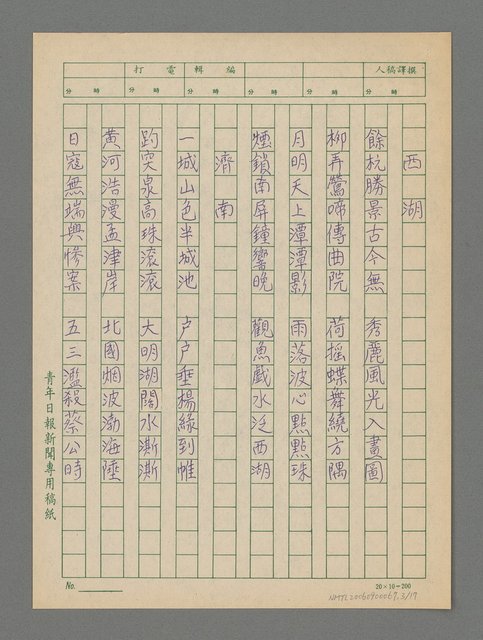 撰譯稿人
編輯
電打
時 分 時 分 時 分 時 分 時 分 時 分
西湖
餘杭勝景古今無 秀麗風光入畫圖
柳再鶯啼傳曲院 荷搖蝶舞繞方隅
月明天上潭潭影 雨落波心點點珠
煙鎖南屏鐘響晚 觀魚戲水泛西湖
濟南
一城山色半城池 戶戶垂楊緣到帷
趵突泉高珠滾滾 大明湖闊水澌澌
黃河浩漫孟津岸 北國烟波渤海陲
日寇無端興慘案 五三濫殺蔡公時
青年日報新聞專用稿紙
No.
20×10=200
NMTL20060900067.3/17